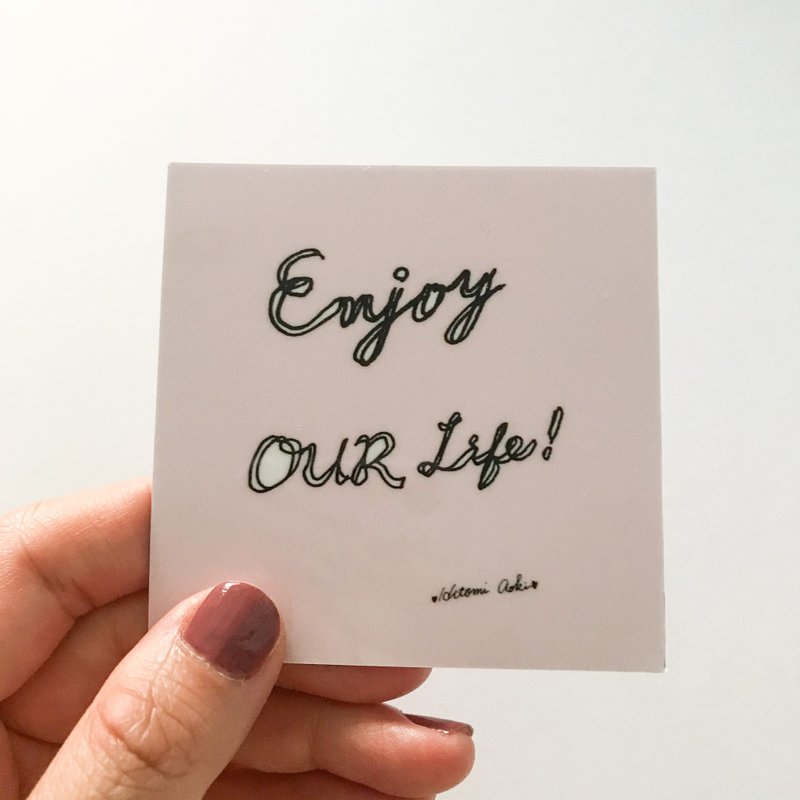 Enjoy
OUR Life!
♥Hitomi Aoki♥